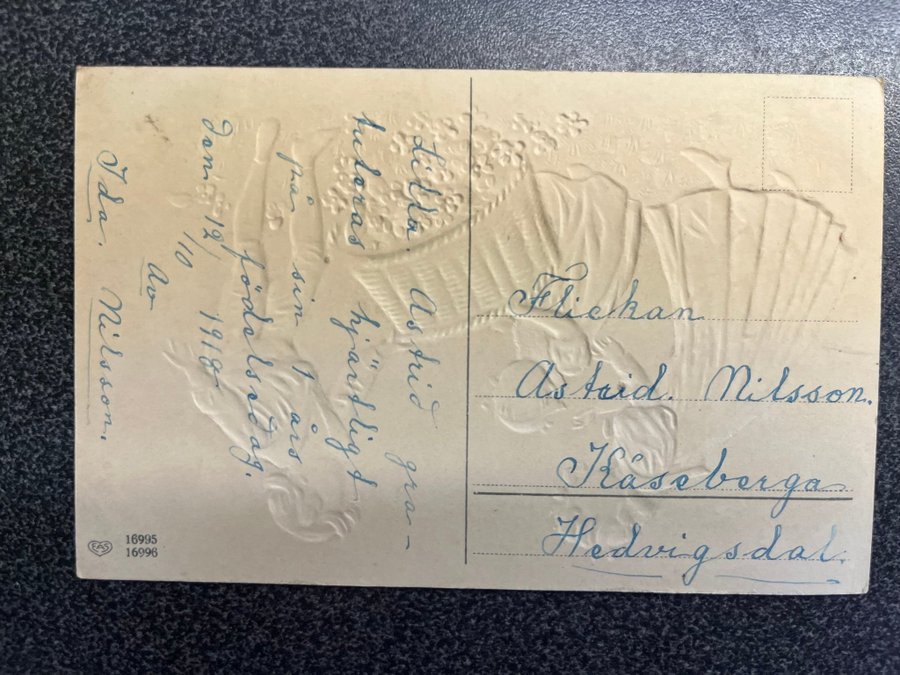 Lilla. Astrid gra-
tuleras hjärtligt
på sin 1 års
födelsedag.
den 12/10 1918
av
Ida. Nilsson.
Flickan
Astrid. Nilsson.
Kåseberga
Hedvigsdal.
EAS
16995
16996